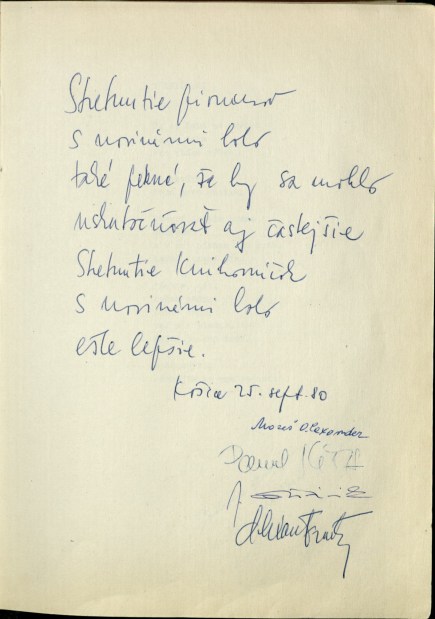 Stretnutie pionerov
s novinármi bolo
také pekné, že by sa mohlo
uskutočňovať aj častejšie
Stretnutie knihovníčok
s novinármi bolo
ešte lepšie.
Košice 25. sept. 80
Alexander
Daniel